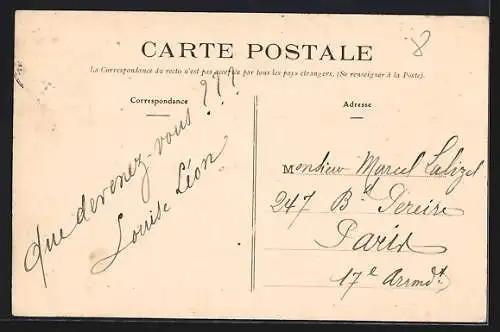 8
CARTE POSTALE
La Correspondance du recto n'est pas acceptée par tous les pays étrangers. (Se renseigner à la Poste).
Correspondance
Que devenez-vous ???
Louise Léon
Adresse
Monsieur Marcel Lalizel
247 Bd Pereire
Paris
17e Arrondt